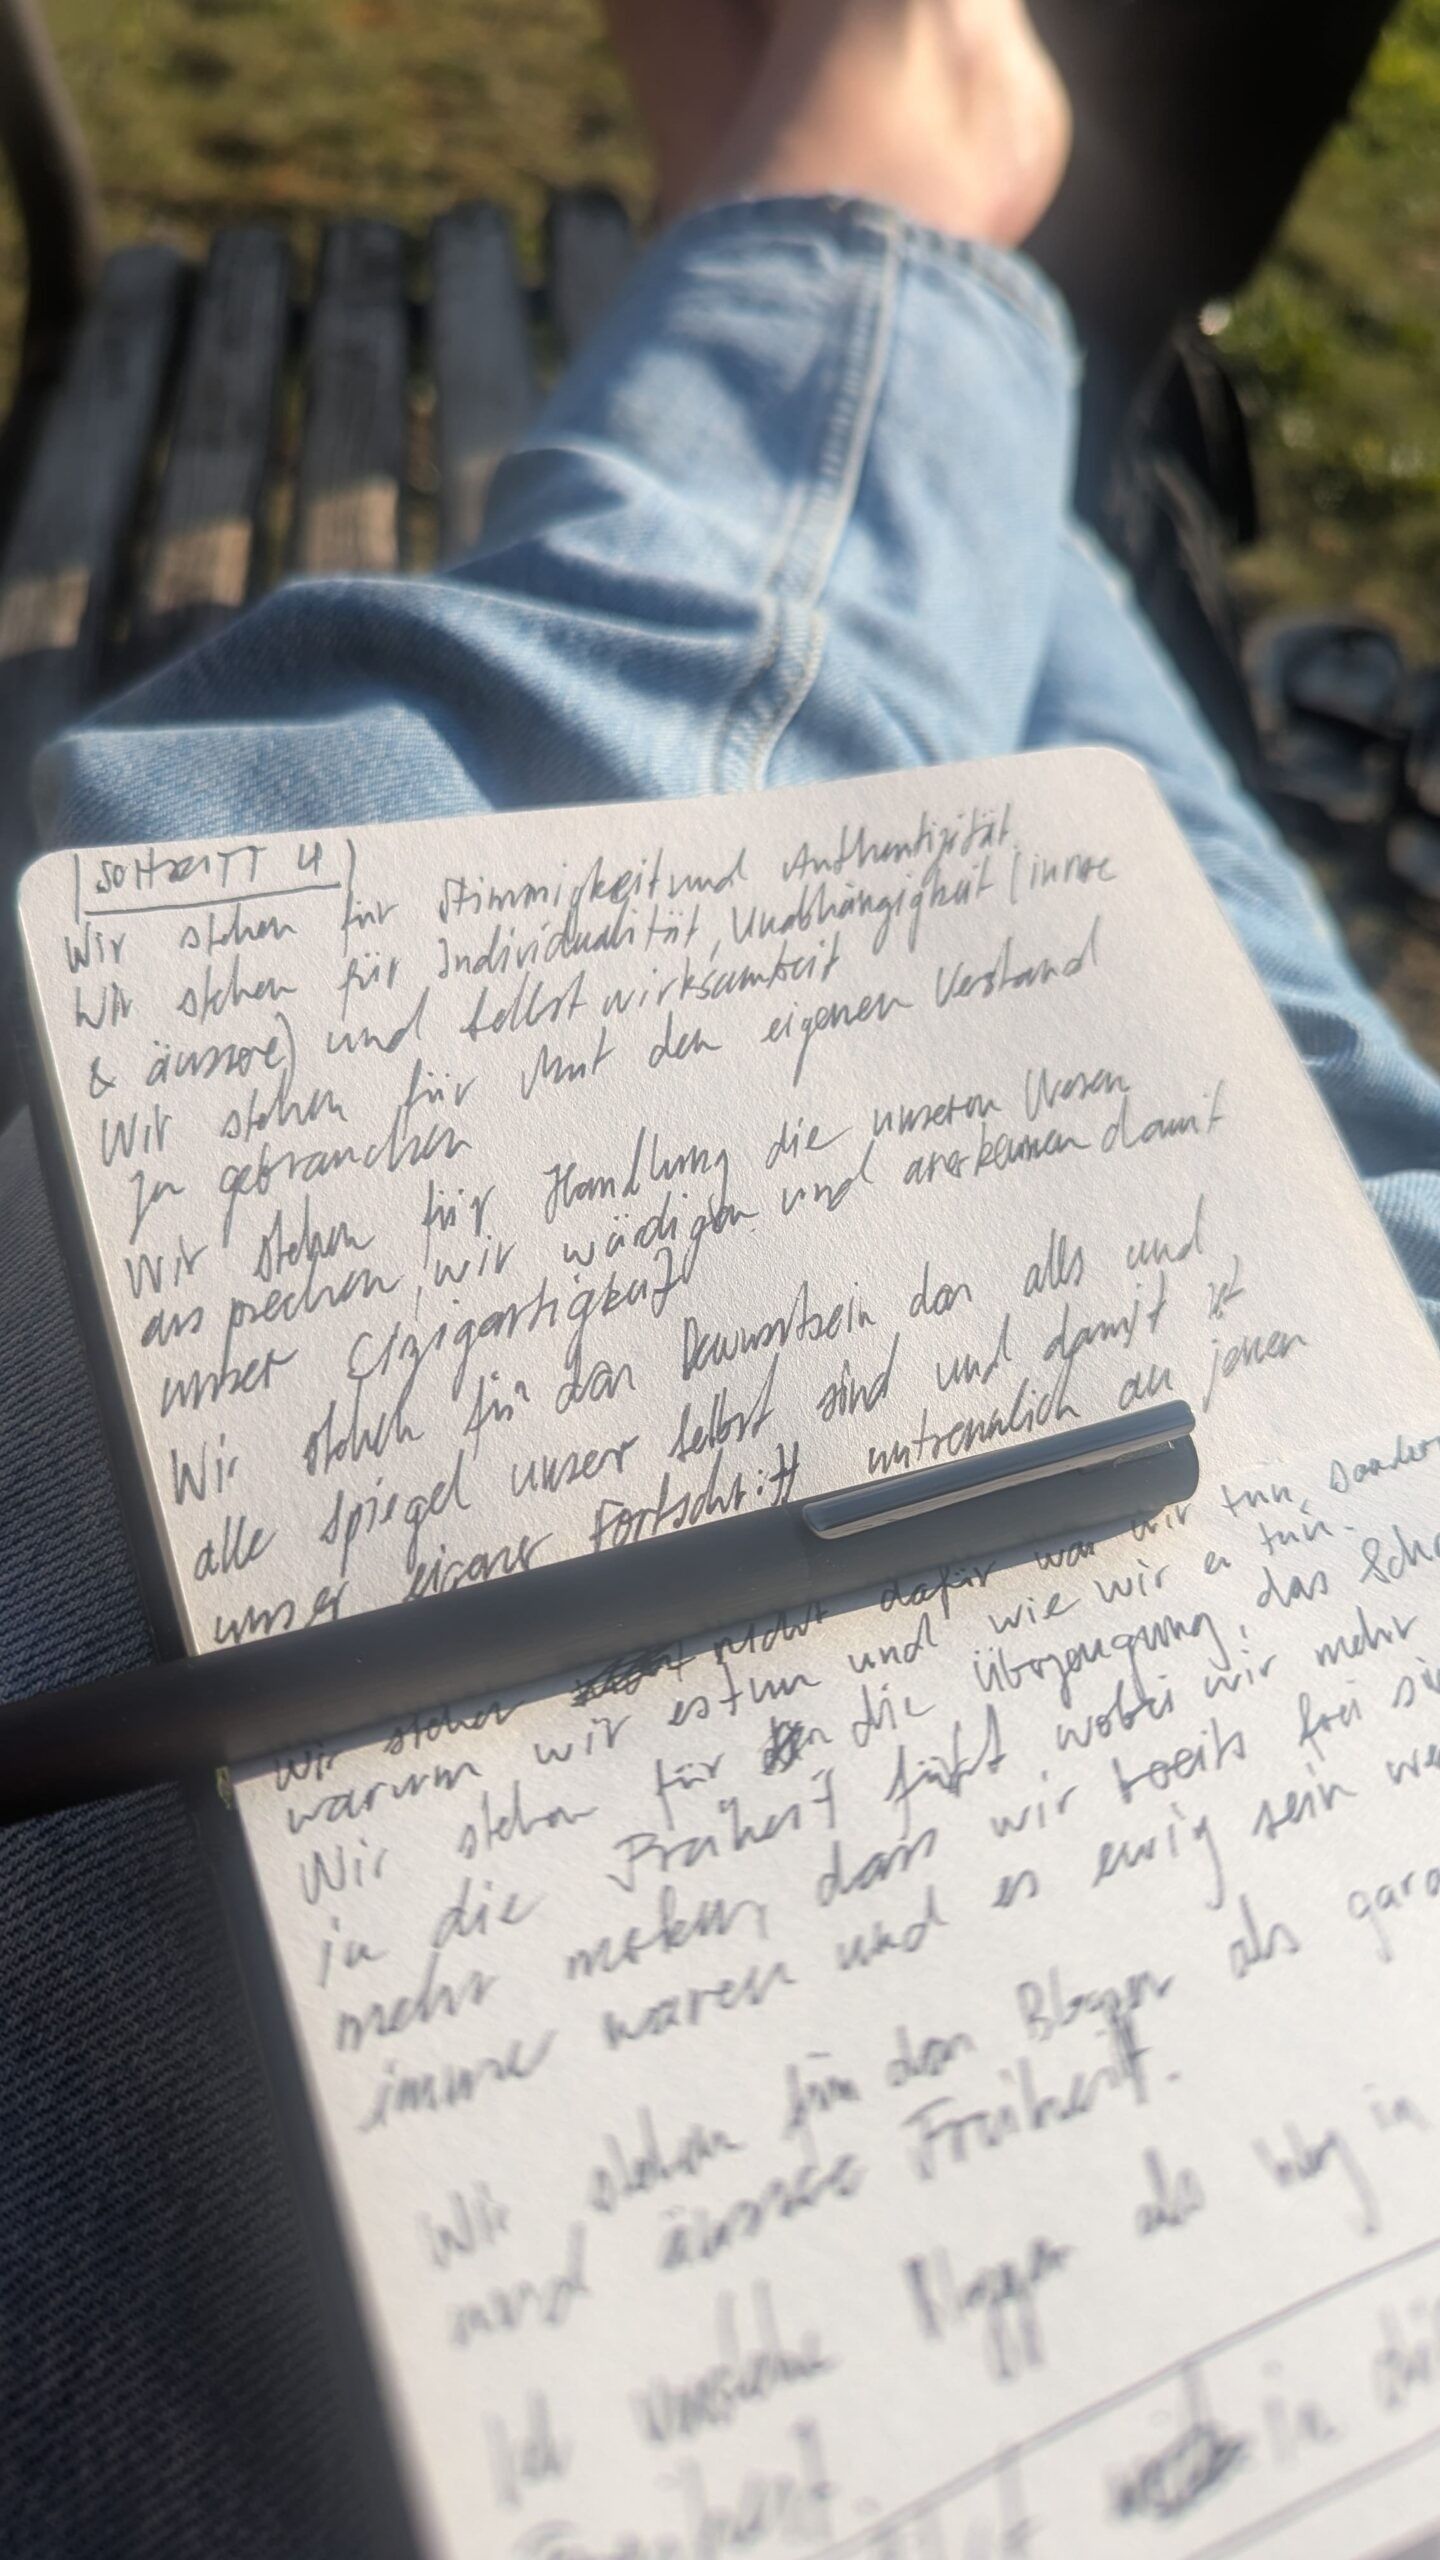 (SCHRITT 4)
Wir stehen für Stimmigkeit und Authentizität.
Wir stehen für Individualität, Unabhängigkeit (innre
& äussre) und Selbstwirksamkeit
Wir stehen für Mut den eigenen Verstand
zu gebrauchen
Wir stehen für Handlung die unseren Wesen
ansprechen, wir würdigen und anerkennen damit
unser Eizigartigkeit
Wir stehen für das Bewusstsein das alles und
alle Spiegel unser selbst sind und damit ist
unser eigener Fortschritt untrennlich an jenen
Wir stehen nicht dafür was wir tun, sondern
warum wir es tun und wie wir es tun.
Wir stehen für die Überzeugung, das Schr
in die Freiheit führt, wobei wir mehr
mehr merken, dass wir bereits frei sin
immer waren und es ewig sein we
Wir stehen für das Bloggen als
und äussere Freiheit.
Ich verstehe Bloggen als Weg in
in